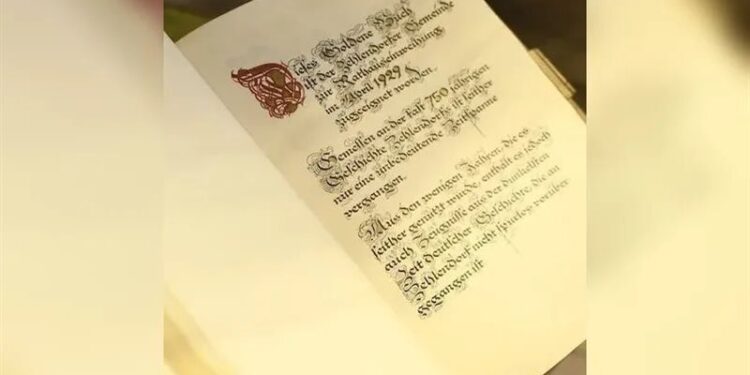 Dieses Goldene Buch
ist der Zehlendorfer Gemeinde
zur Rathauseinweihung
im April 1929
zugeeignet worden.
Gemessen an der fast 750 jährigen
Geschichte Zehlendorfs ist seither
nur eine unbedeutende Zeitspanne
vergangen.
Aus den wenigen Jahren, die es
seither genützt wurde, enthält es jedoch
auch Zeugnisse aus der dunkelsten
Zeit deutscher Geschichte, die an
Zehlendorf nicht spurlos vorüber
gegangen ist